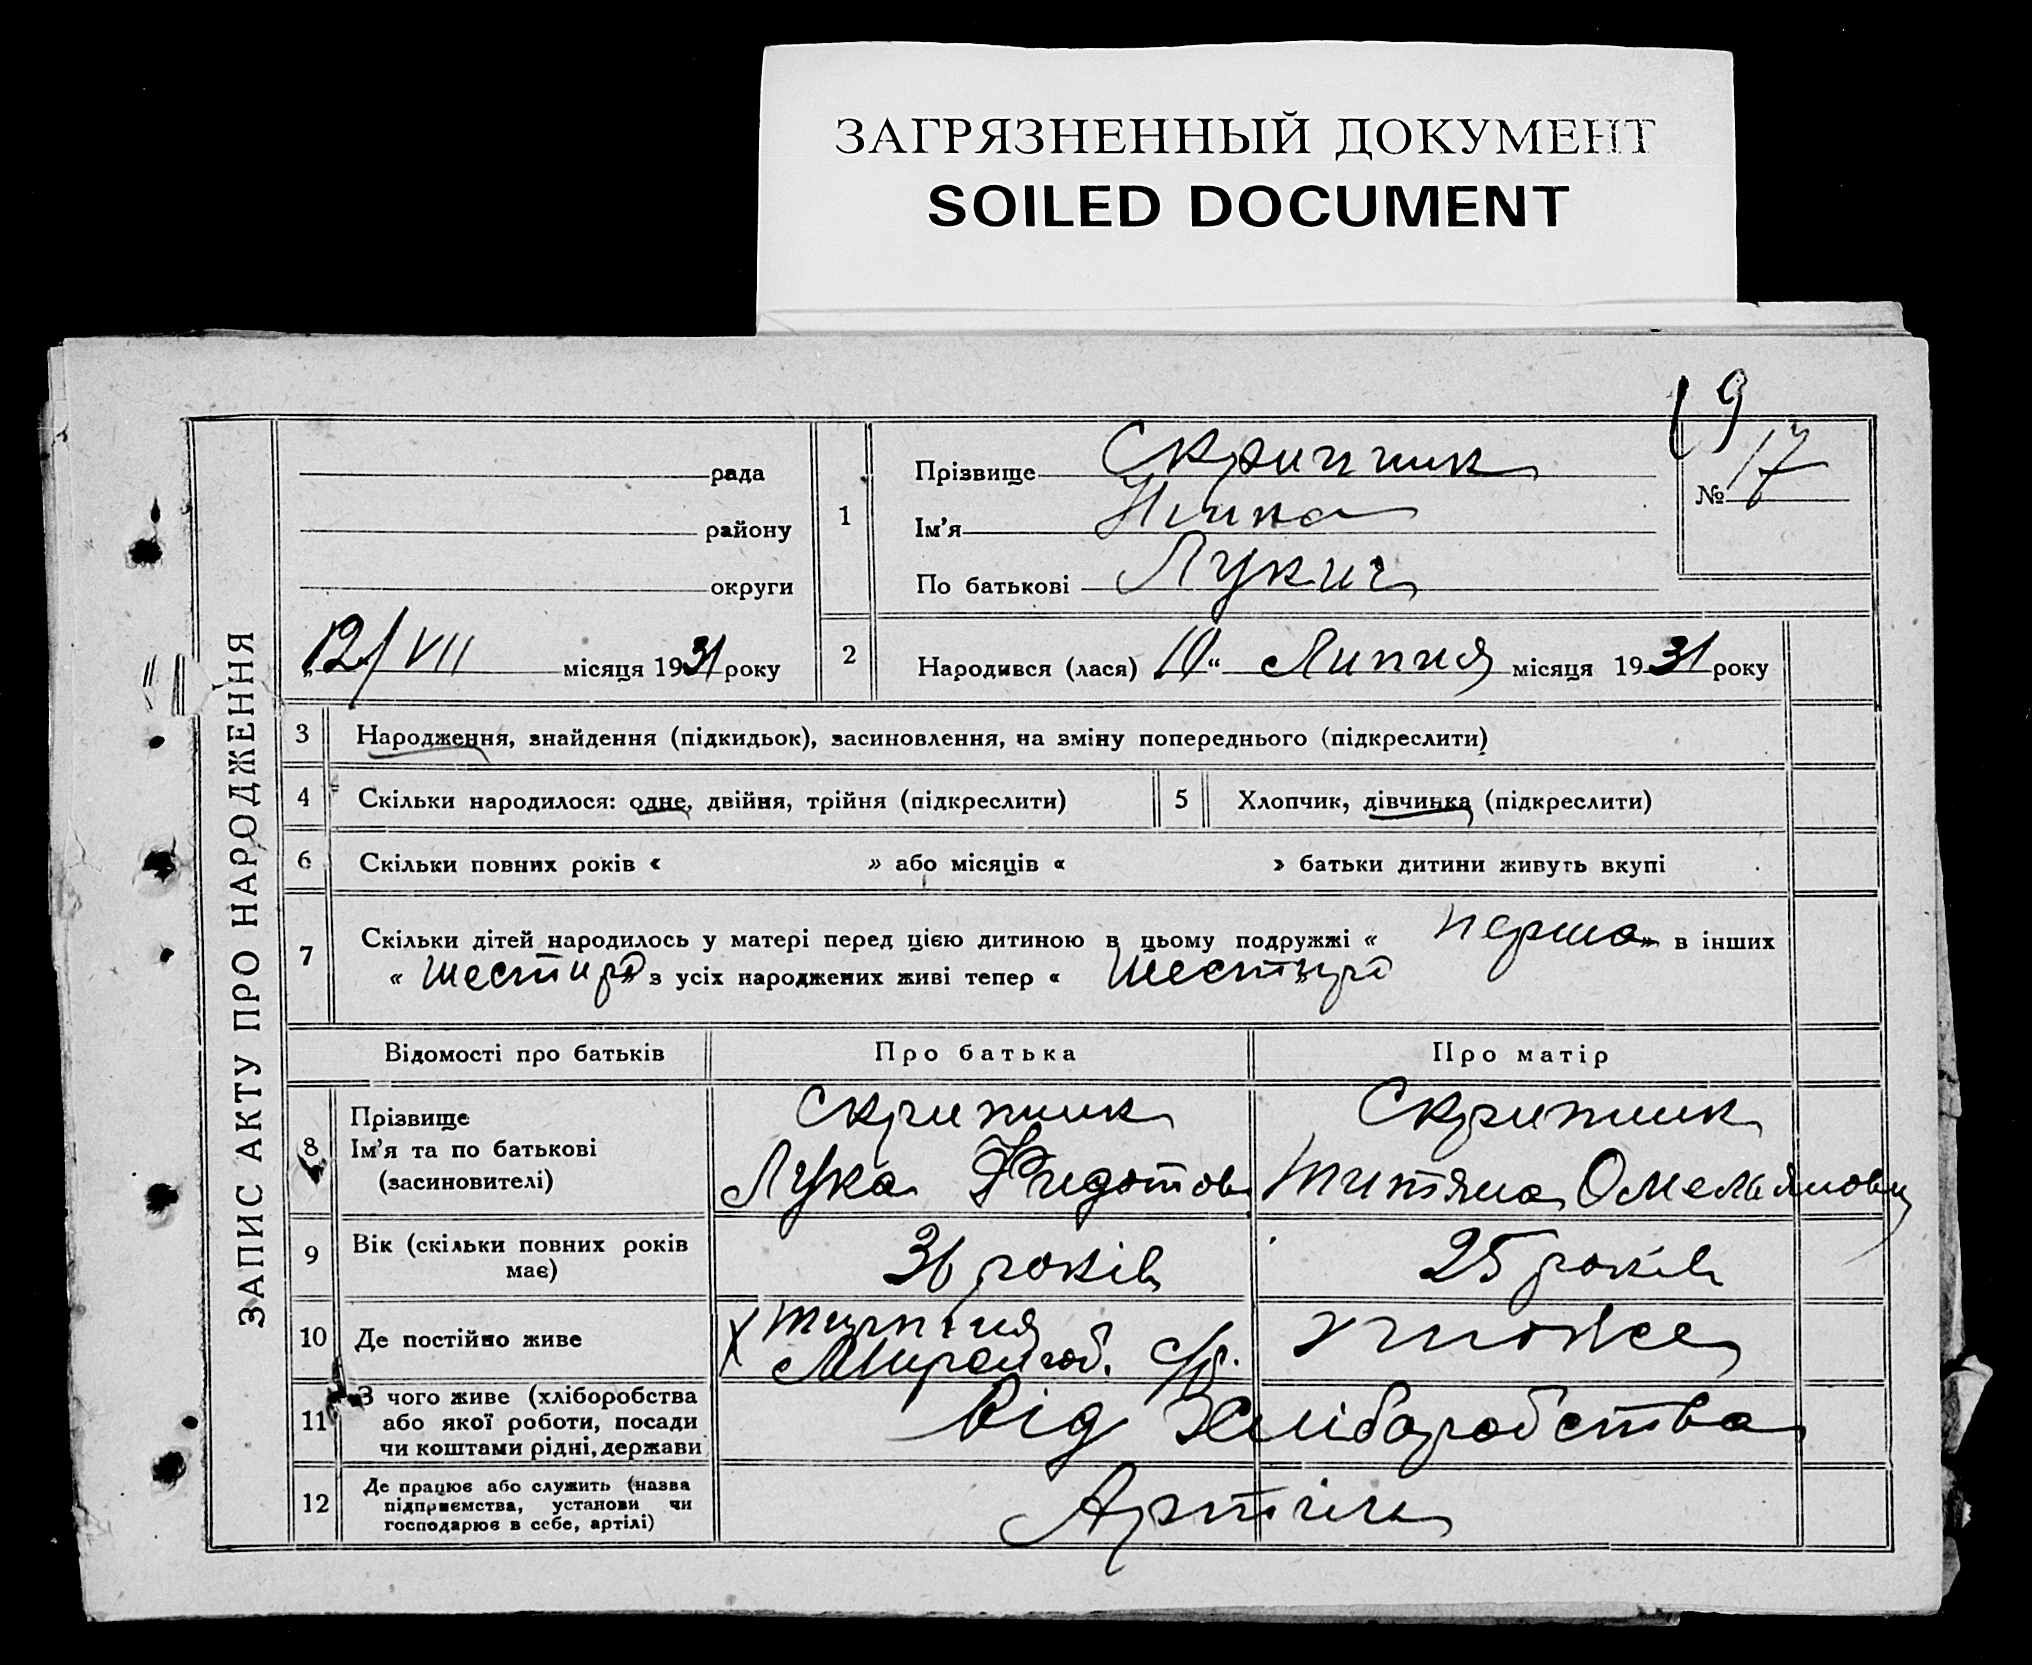 ЗАГРЯЗНЕННЫЙ ДОКУМЕНТ
SOILED DOCUMENT
19
ЗАПИС АКТУ ПРО НАРОДЖЕННЯ
рада
району
округи
„12/VII місяця 1931 року
1
Прізвище Скрипник
Ім'я Нина
По батькові Лукич
№ 17
2
Народився (лася) 10“ Липня місяця 1931 року
3 Народження, знайдення (підкидьок), засиновлення, на зміну попереднього (підкреслити)
4 Скільки народилося: одне, двійня, трійня (підкреслити)
5 Хлопчик, дівчинка (підкреслити)
6 Скільки повних років « » або місяців « » батьки дитини живуть вкупі
7 Скільки дітей народилось у матері перед цією дитиною в цьому подружжі « перша » в інших
« шестиро » з усіх народжених живі тепер « шестиро
Відомості про батьків Про батька Про матір
8 Прізвище Скрипник Скрипник
Ім'я та по батькові
(засиновителі) Лука Федотов Титяна Омельяновн
9 Вік (скільки повних років
має) 36 років 25 років
10 Де постійно живе
Миролюб. с/р. тиоже
11 З чого живе (хліборобства
або якої роботи, посади
чи коштами рідні, держави
Від Хліборобства
12 Де працює або служить (назва
підприємства, установи чи
господарює в себе, артілі)
Артіль